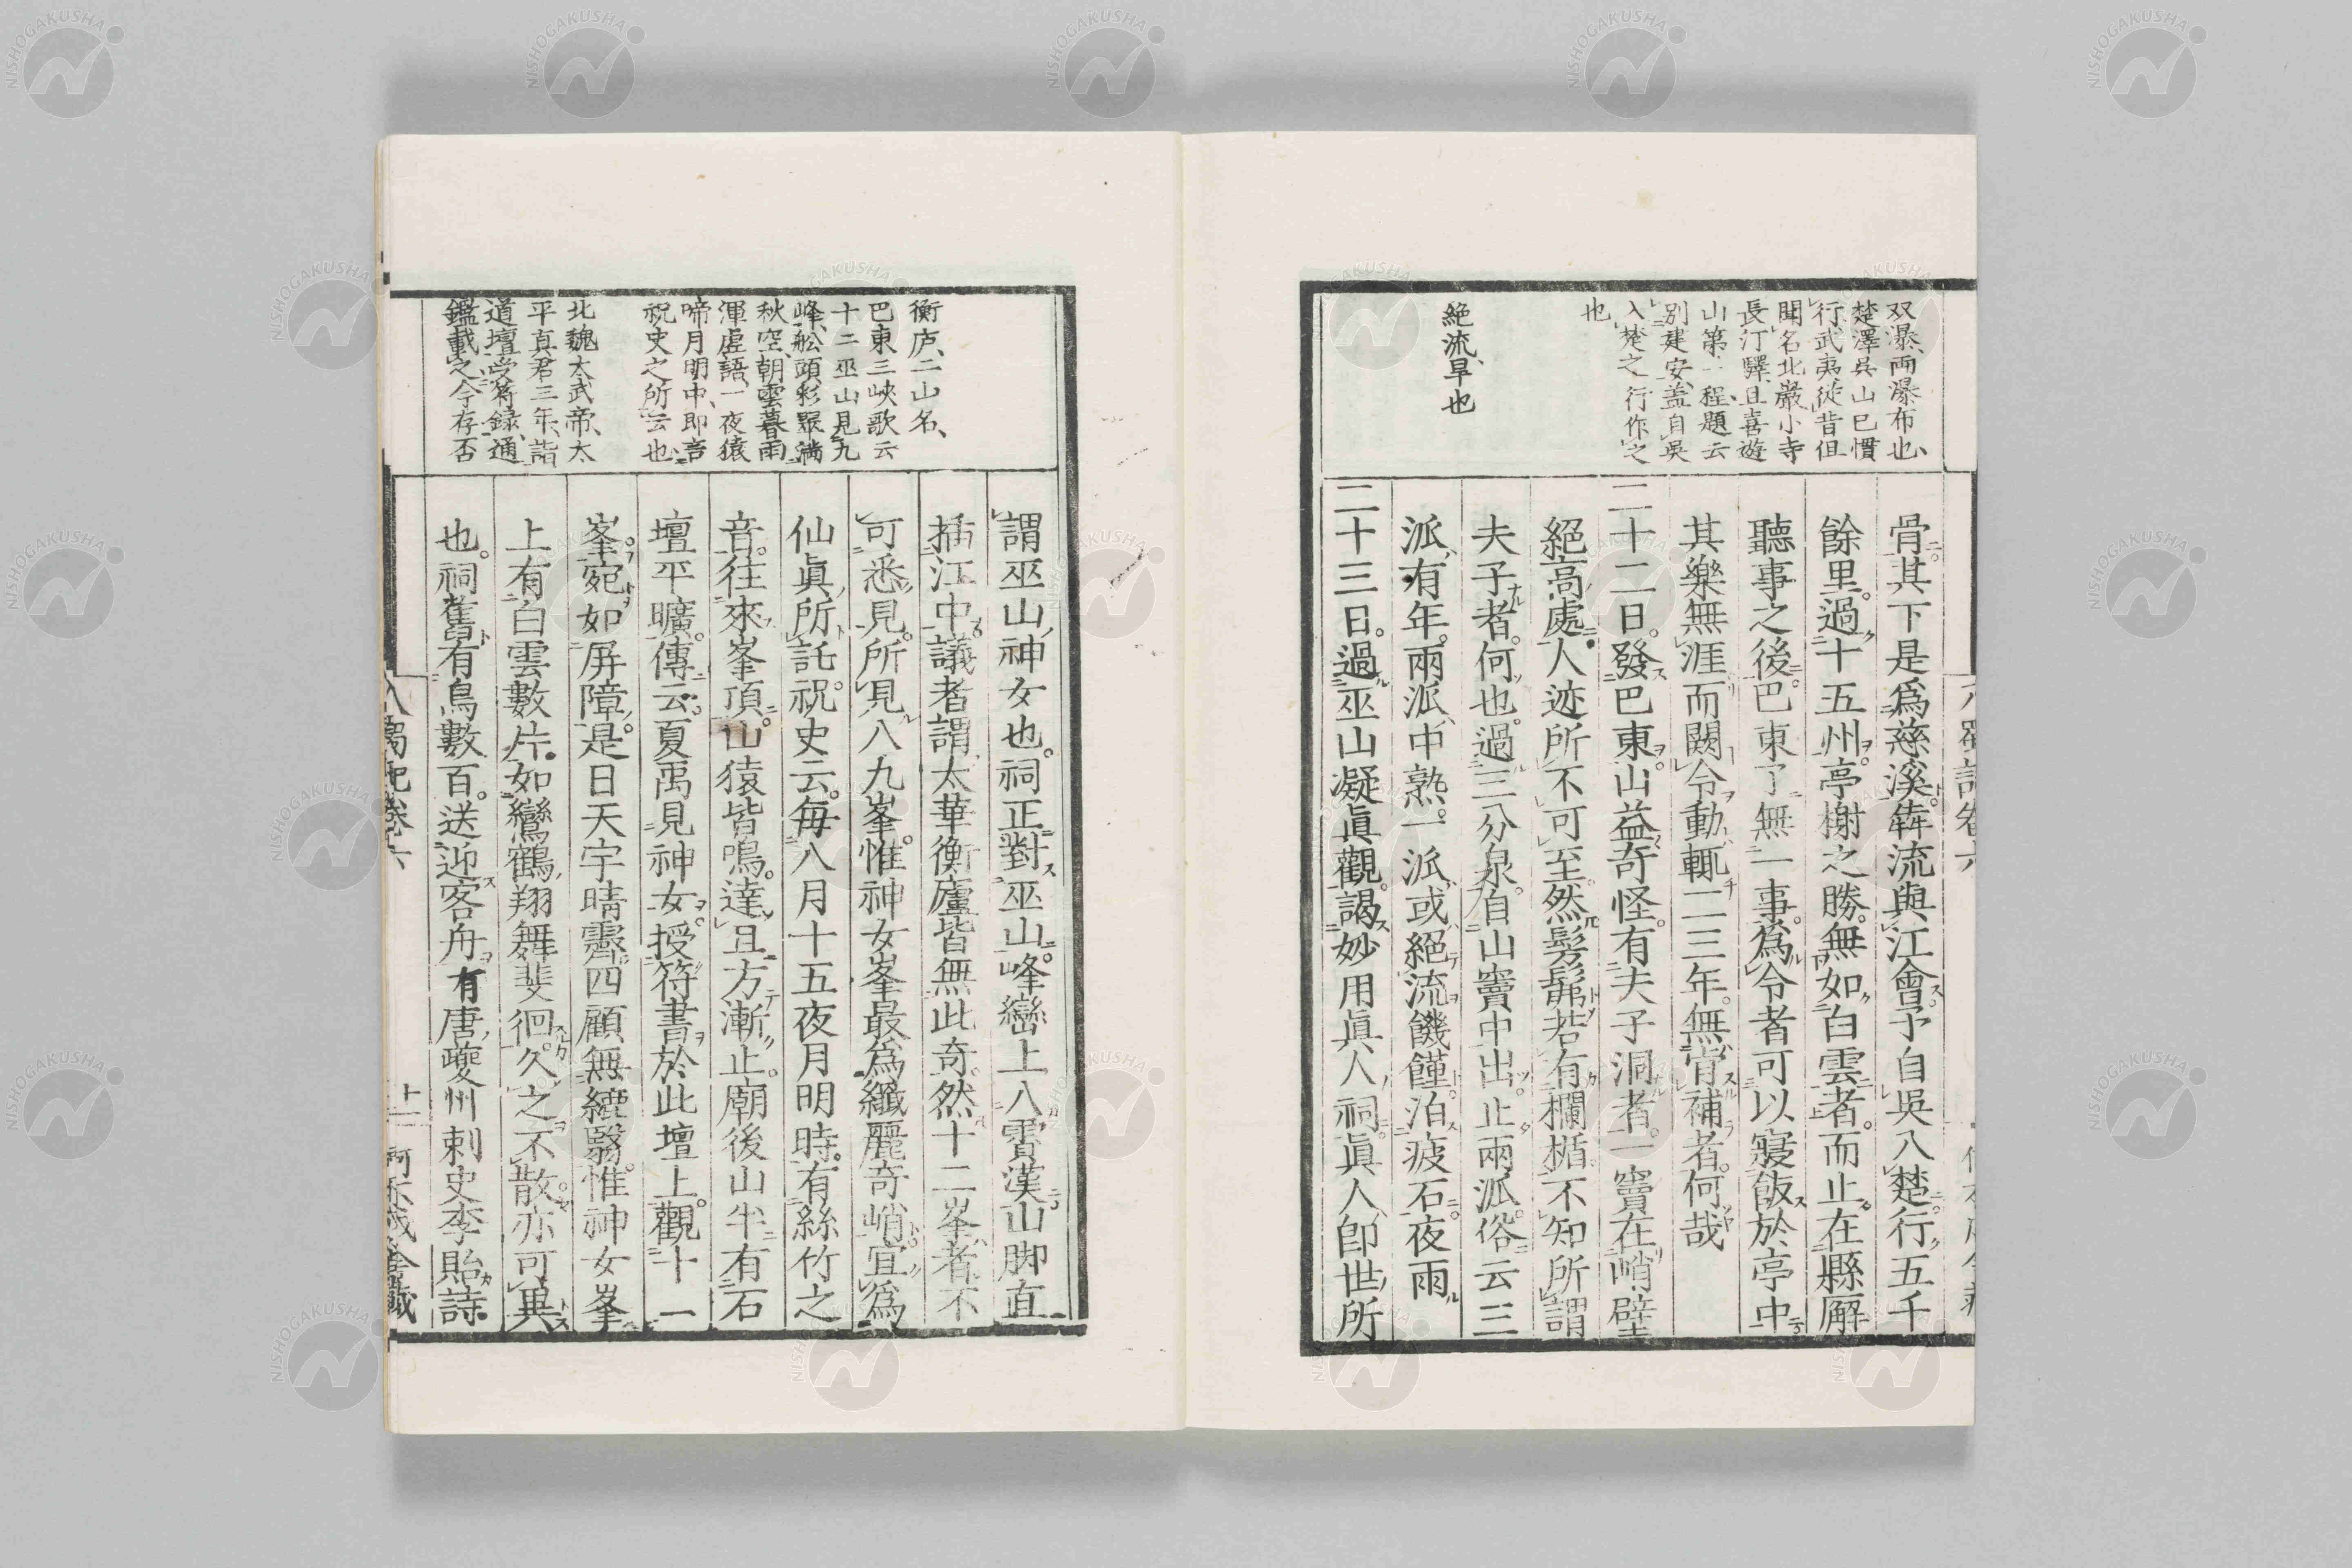 双瀑、両瀑布也、
楚澤吳山已慣
行武夷從昔但
聞名北巖小寺
長汀驛、且喜遊
山第一程、題云
別建安、蓋自吳
入楚之行作之
也
絕流、旱也
骨。其下是爲慈溪。犇流與江會。予自吳入楚。行五千
餘里。過十五州。亭榭之勝。無如白雲者。而止在縣廨
聽事之後。巴東了無一事。爲令者可以寢飯於亭中
其樂無涯。而闕令動輒二三年。無肯補者。何哉
二十二日。發巴東。山益奇怪。有夫子洞者。一竇在峭壁
絕高處。人迹所不可至。然髣髴若有欄楯。不知所謂
夫子者。何也。過三分泉。自山竇中出。止兩派。俗云三
派有年。兩派中熟。一派或絕流饑饉。泊疲石。夜雨
二十三日。過巫山凝眞觀。謁妙用眞人祠。眞人卽世所
衡庐、二山名、
巴東三峽歌云
十二巫山見九
峰、舩頭彩翠滿
秋空、朝雲暮雨
渾虛語、一夜猿
啼月明中、即言
祝史之所云也
北魏太武帝、太
平真君三年、詣
道壇受符録、通
鑑載之、今存否
謂巫山神女也。祠正對巫山。峰巒上入霄漢。山脚直
插江中。議者謂太華衡廬。皆無此奇。然十二峯者。不
可悉見。所見八九峯。惟神女峯最爲纖麗奇峭。宜爲
仙眞所託。祝史云。每八月十五夜月明時。有絲竹之
音。往來峯頂。山猿皆鳴。達旦方漸止。廟後山半有石
壇平曠。傳云。夏禹見神女。授符書於此壇上。觀十一
峯。宛如屏障。是日天宇晴霽。四顧無纖翳。惟神女峯
上有白雲數片。如鸞鶴翔舞。斐徊久之不散。亦可異
也。祠舊有烏數百。送迎客舟。有唐夔州刺史李貽詩。
入蜀記卷六
十一